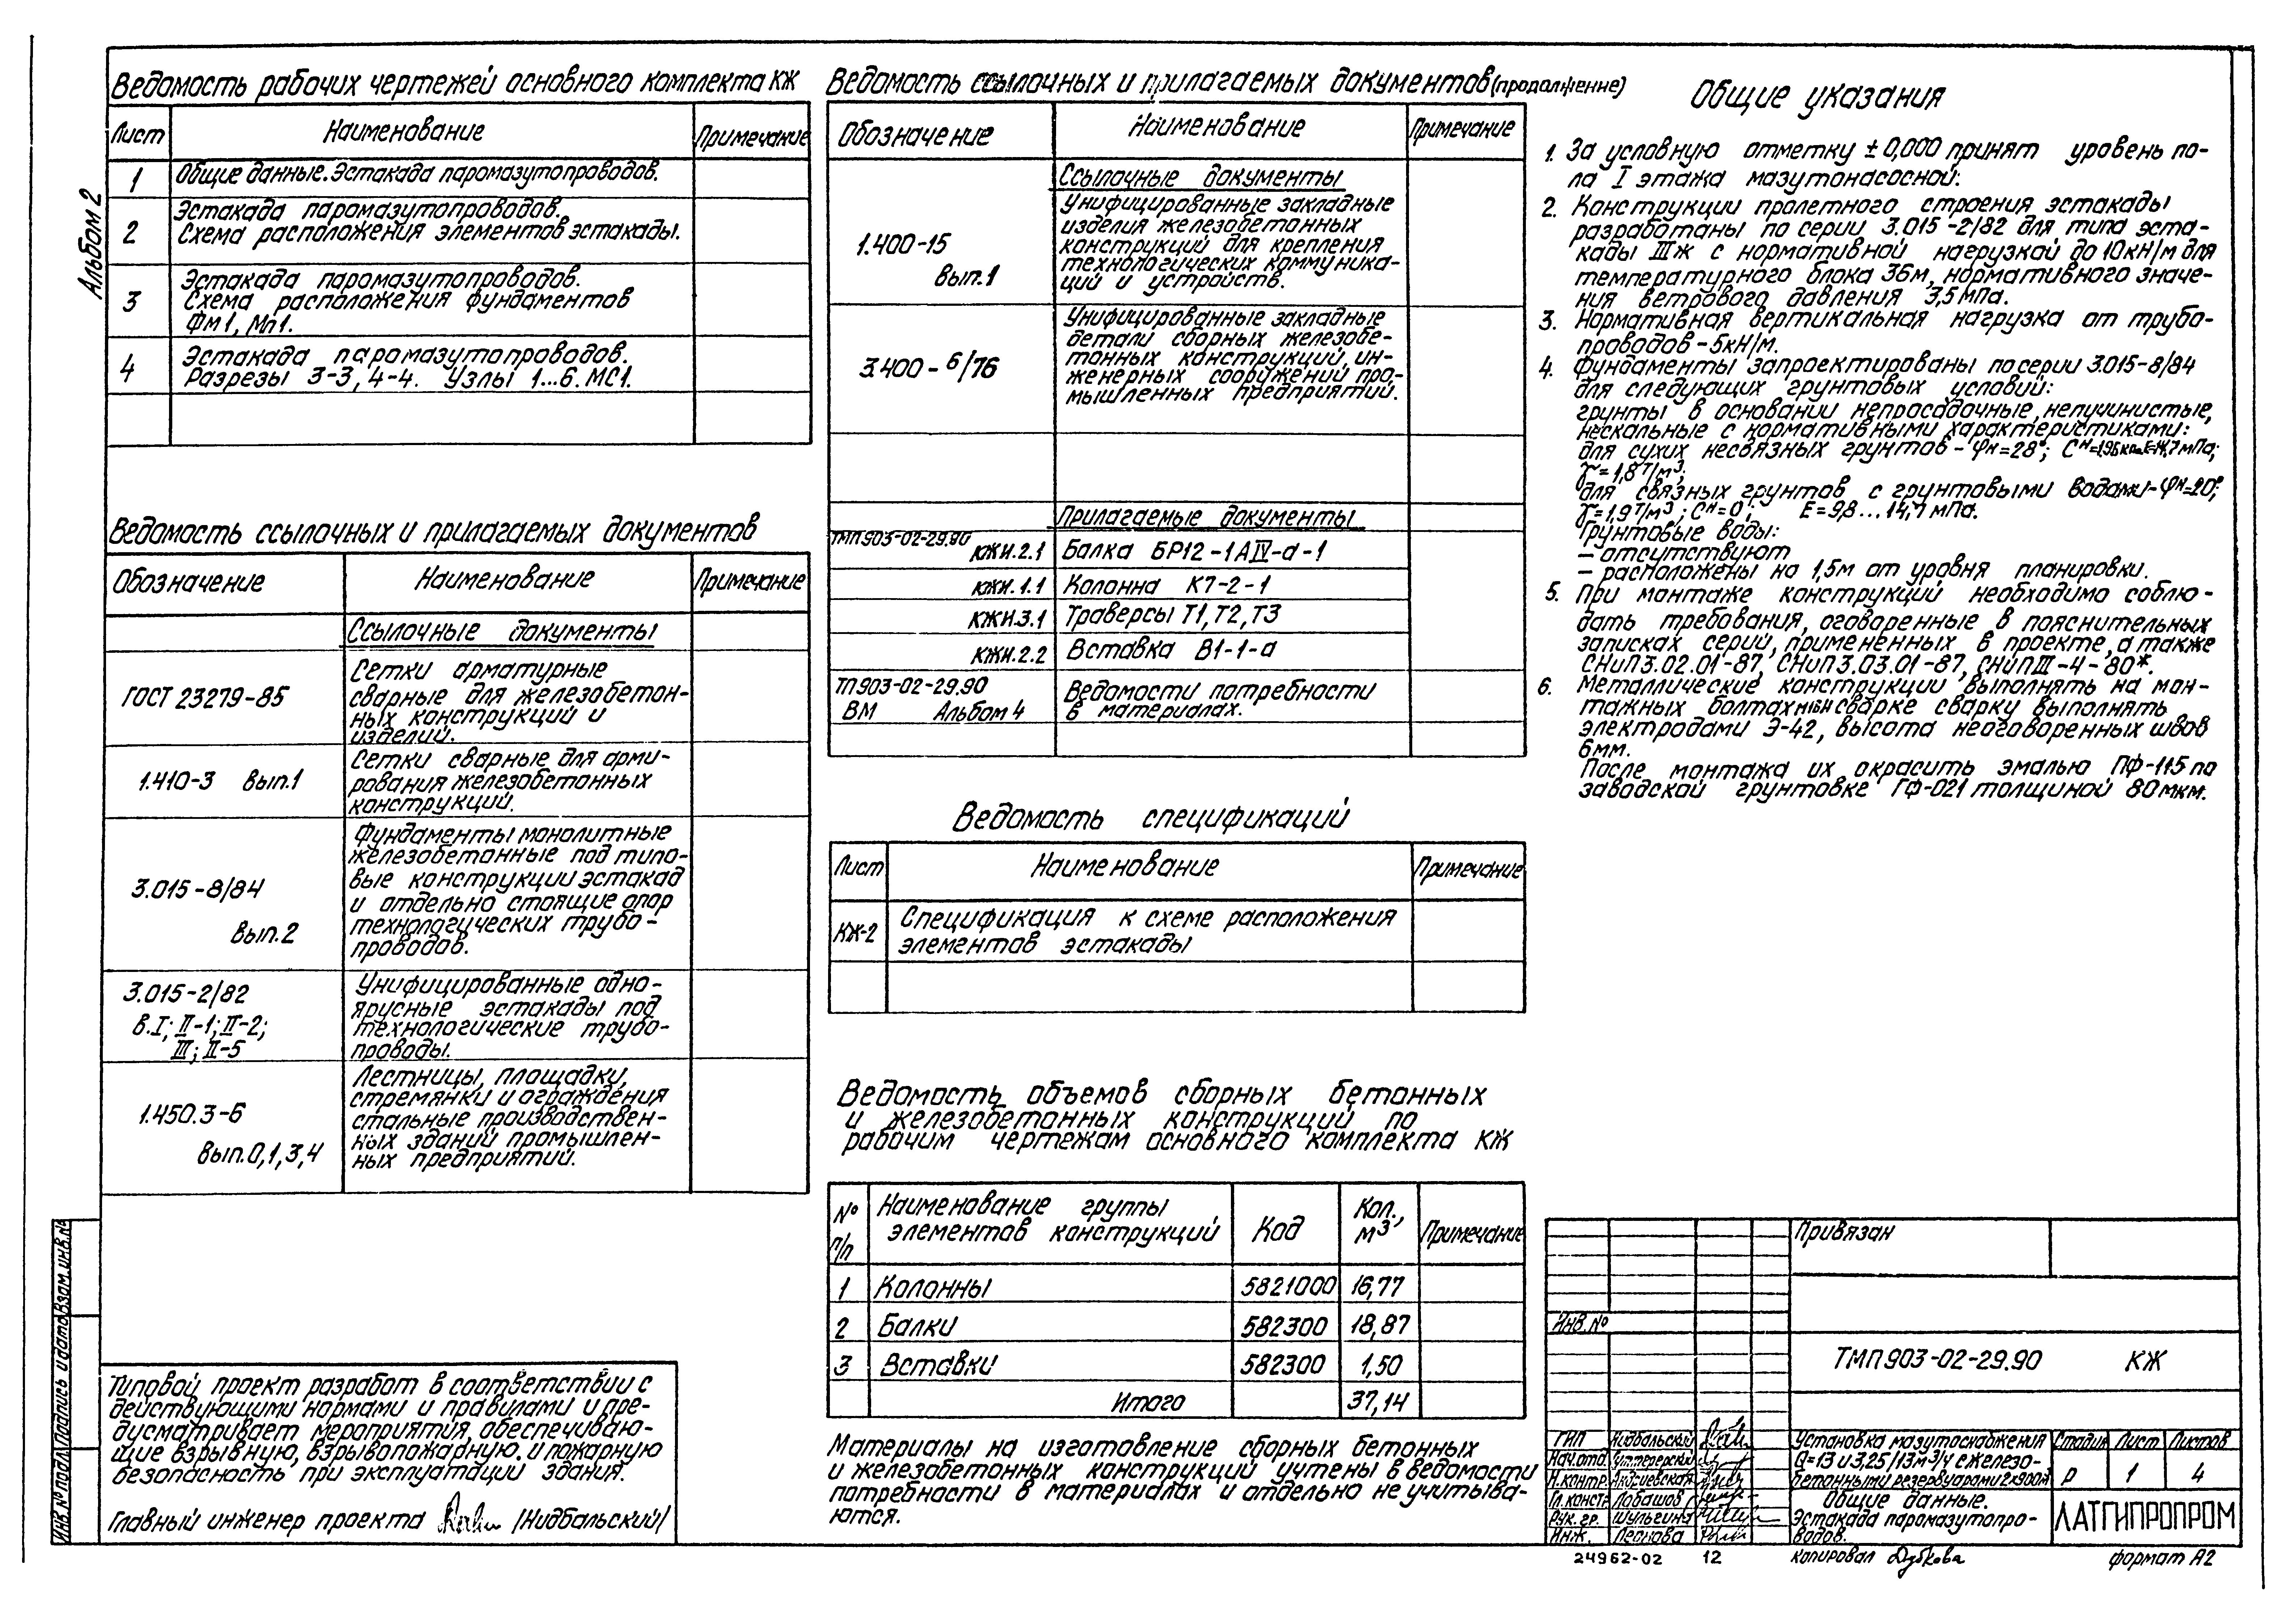 Альбом 2
Ведомость рабочих чертежей основного комплекта КЖ
Лист Наименование Примечание
1 Общие данные. Эстакада паромазутопроводов.
2 Эстакада паромазутопроводов.
Схема расположения элементов эстакады.
3 Эстакада паромазутопроводов.
Схема расположения фундаментов
Фм1, Мп1.
4 Эстакада паромазутопроводов.
Разрезы 3-3, 4-4. Узлы 1...6. МС1.
Ведомость ссылочных и прилагаемых документов
Обозначение Наименование Примечание
Ссылочные документы
ГОСТ 23279-85 Сетки арматурные
сварные для железобетон-
ных конструкций и
изделий.
1.410-3 вып.1 Сетки сварные для арми-
рования железобетонных
конструкций.
3.015-8/84 Вып.2 Фундаменты монолитные
железобетонные под типо-
вые конструкции эстакад
и отдельно стоящие опор
технологических трубо-
проводов.
3.015-2/82
в.I; II-1; II-2;
III; II-5
Унифицированные одно-
ярусные эстакады под
технологические трубо-
проводы.
1.450.3-6
Вып.0,1,3,4
Лестницы, площадки,
стремянки и ограждения
стальные производствен-
ных зданий промышлен-
ных предприятий.
Типовой проект разработ в соответствии с
действующими нормами и правилами и пре-
дусматривает мероприятия, обеспечиваю-
щие взрывную, взрывопожарную и пожарную
безопасность при эксплуатации здания.
Главный инженер проекта /Нидбальский/
Инв.№ подл. Подпись и дата Взам.инв.№
Ведомость ссылочных и прилагаемых документов (продолжение)
Обозначение Наименование Примечание
Ссылочные документы
1.400-15
вып.1
Унифицированные закладные
изделия железобетонных
конструкций для крепления
технологических коммуника-
ций и устройств.
3.400-6/76
Унифицированные закладные
детали сборных железобе-
тонных конструкций, ин-
женерных сооружений про-
мышленных предприятий.
Прилагаемые документы
ТМП903-02-29.90
КЖИ.2.1 Балка БР12-1АIV-а-1
КЖИ.1.1 Колонна К7-2-1
КЖИ.3.1 Траверсы Т1, Т2, Т3
КЖИ.2.2 Вставка В1-1-а
ТП903-02-29.90
ВМ Альбом 4
Ведомости потребности
в материалах.
Ведомость спецификаций
Лист Наименование Примечание
КЖ-2 Спецификация к схеме расположения
элементов эстакады
Ведомость объемов сборных бетонных
и железобетонных конструкций по
рабочим чертежам основного комплекта КЖ
№ п/п Наименование группы элементов конструкций Код Кол., м³ Примечание
1 Колонны 5821000 16,77
2 Балки 582300 18,87
3 Вставки 582300 1,50
Итого 37,14
Материалы на изготовление сборных бетонных
и железобетонных конструкций учтены в ведомости
потребности в материалах и отдельно не учитыва-
ются.
Общие указания
1. За условную отметку ±0,000 принят уровень по-
ла I этажа мазутонасосной.
2. Конструкции пролетного строения эстакады
разработаны по серии 3.015-2/82 для типа эста-
кады IIIж с нормативной нагрузкой до 10кН/м для
температурного блока 36м, нормативного значе-
ния ветрового давления 3,5 МПа.
3. Нормативная вертикальная нагрузка от трубо-
проводов - 5кН/м.
4. Фундаменты запроектированы по серии 3.015-8/84
для следующих грунтовых условий:
грунты в основании непросадочные, непучинистые,
нескальные с нормативными характеристиками:
для сухих несвязных грунтов - φн=28°; Сн=1,96кПа Е=14,7 МПа;
γ=1,8 т/м³.
для связных грунтов с грунтовыми водами - φн=20°;
γ=1,9 т/м³; Сн=0; Е=9,8...14,7 МПа.
Грунтовые воды:
- отсутствуют
- расположены на 1,5м от уровня планировки.
5. При монтаже конструкций необходимо соблю-
дать требования, оговоренные в пояснительных
записках серий, примененных в проекте, а также
СНиП 3.02.01-87, СНиП 3.03.01-87, СНиП III-4-80*.
6. Металлические конструкции выполнять на мон-
тажных болтах сварке сварку выполнять
электродами Э-42, высота неоговоренных швов
6мм.
После монтажа их окрасить эмалью ПФ-115 по
заводской грунтовке ГФ-021 толщиной 80мкм.
Привязан
Инв.№
ТМП903-02-29.90 КЖ
ГИП Нидбальский
Нач.отд.
Н.контр. Андриевская
Гл.констр. Лобашов
Рук.гр. Шульгина
Инж. Леонова
Установка мазутоснабжения
Q=13 и 3,25/13 м³/ч с железо-
бетонными резервуарами 2х300м³
Стадия Лист Листов
Р 1 4
Общие данные.
Эстакада паромазутопро-
водов.
ЛАТГИПРОПРОМ
24962-02 12
Копировал Дубкова
формат А2